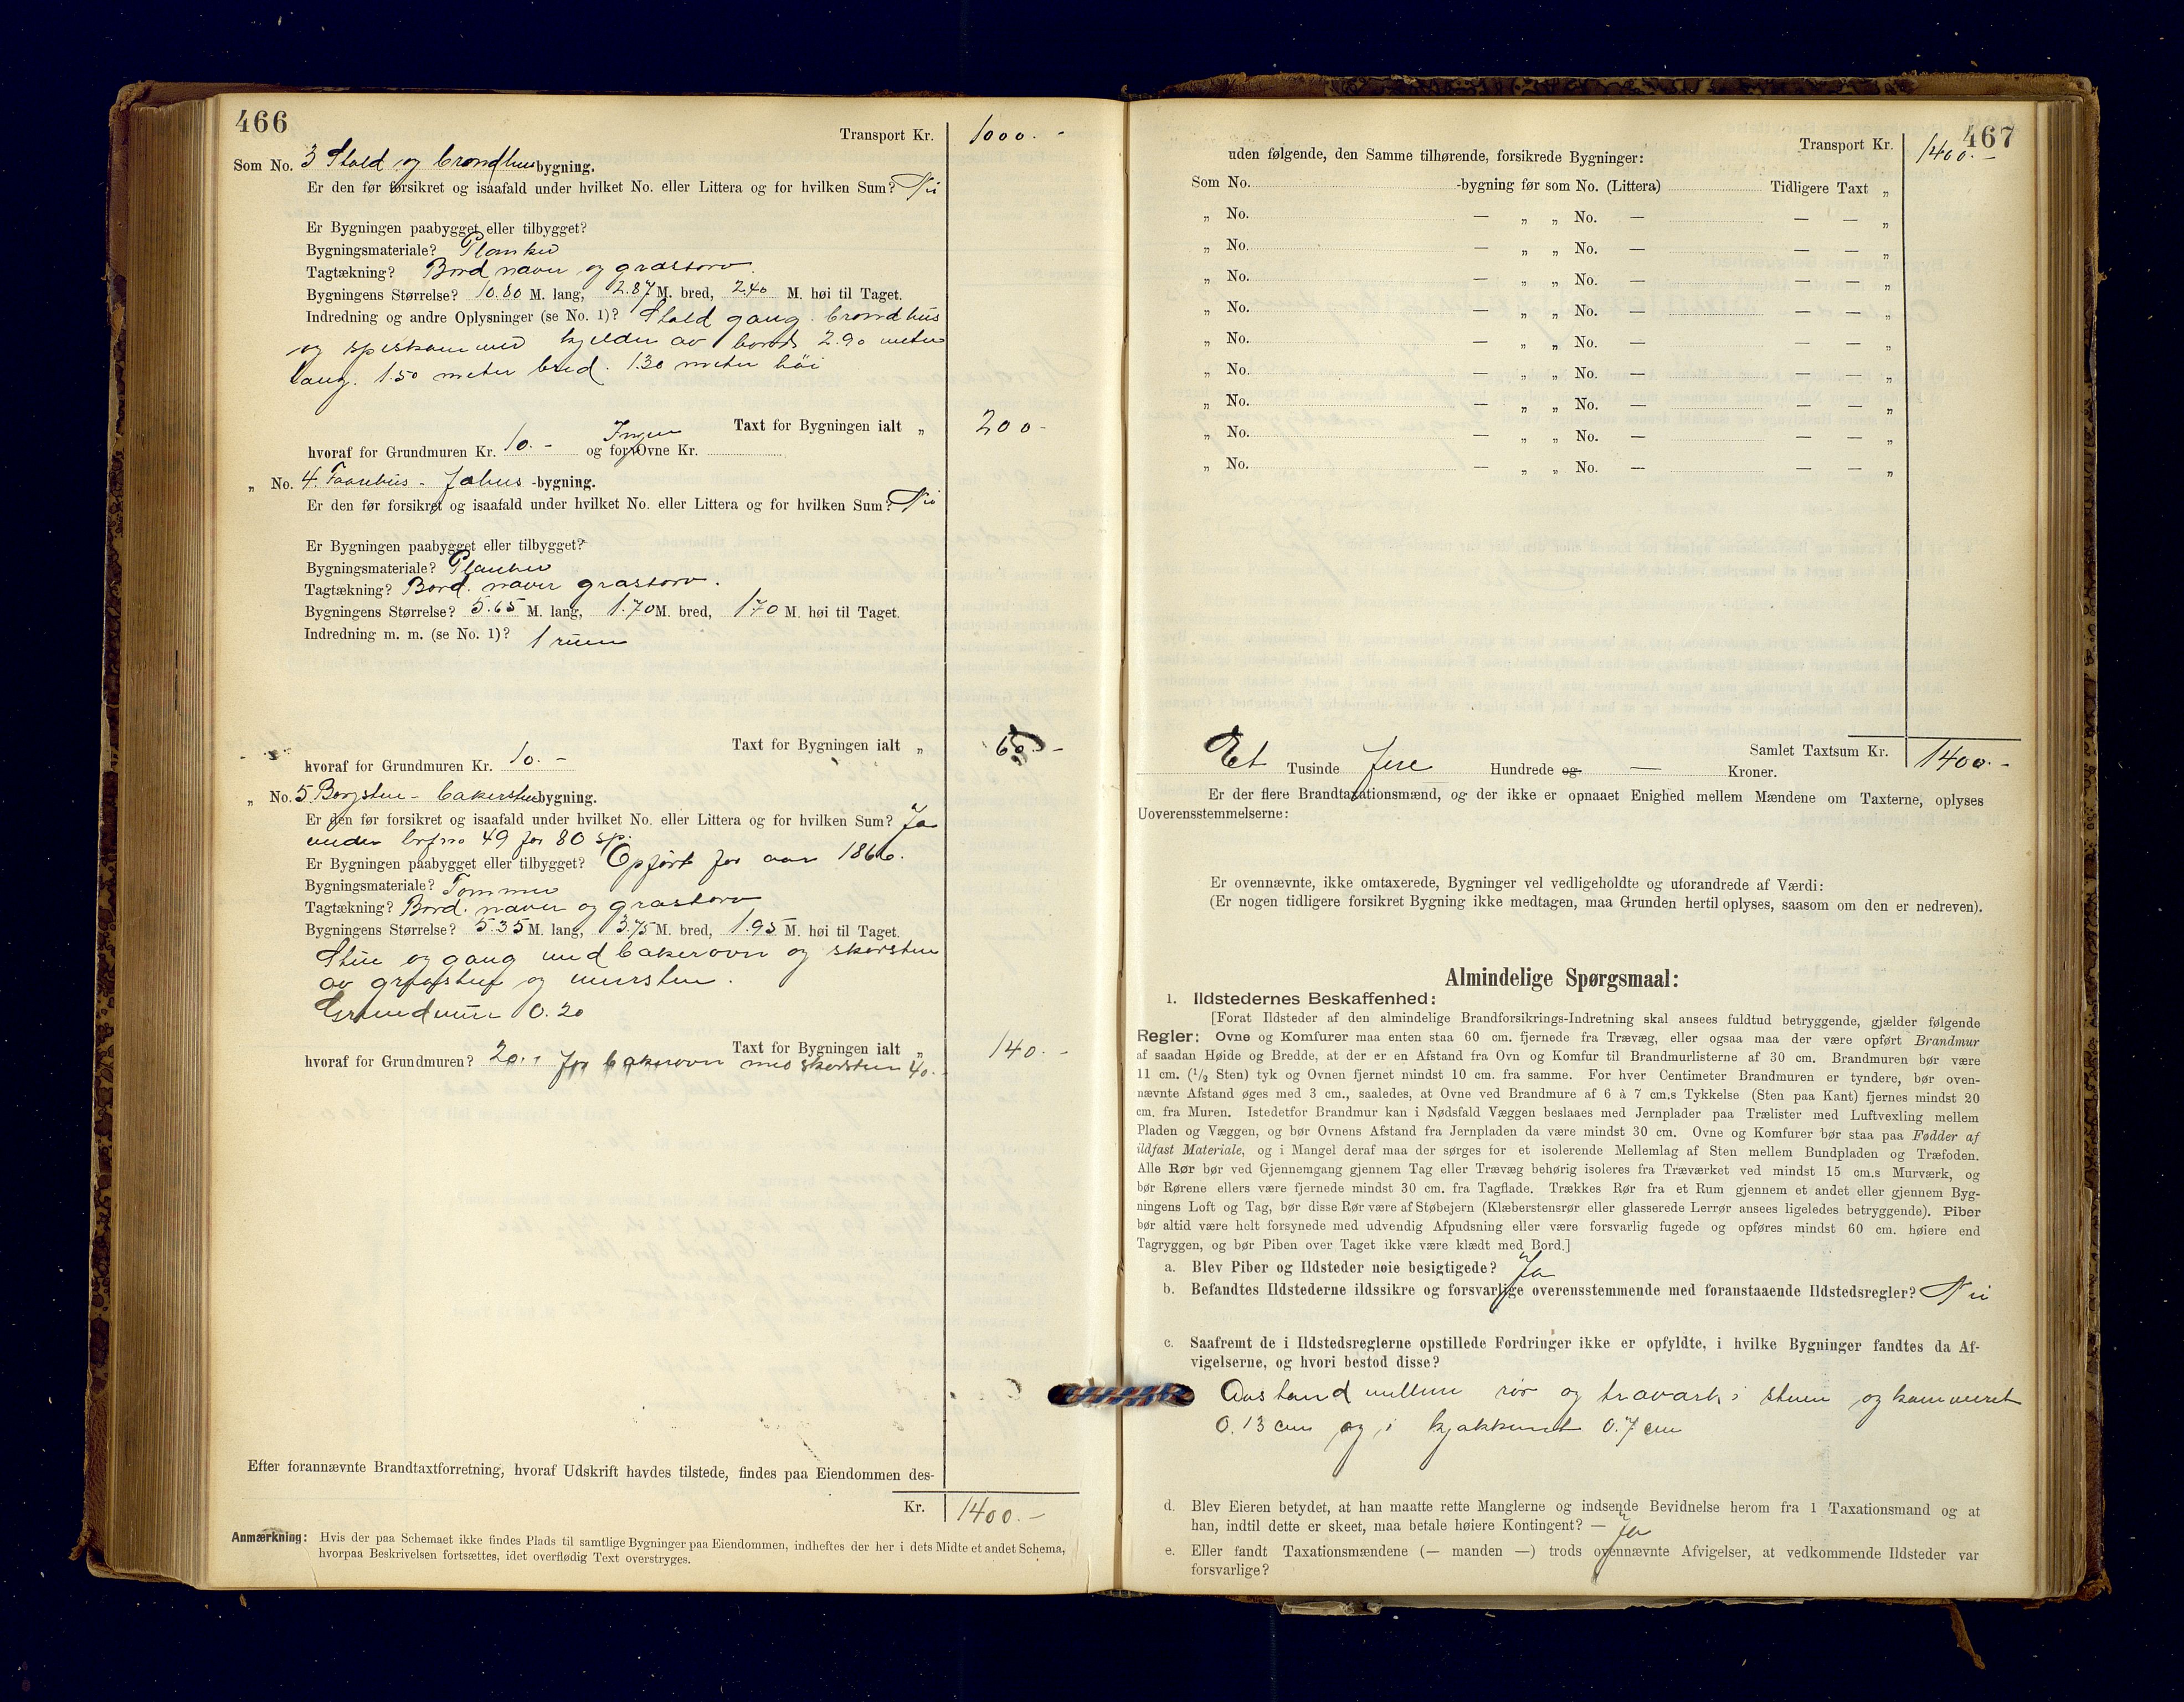 466
Transport Kr. 1000.-
Som No. 3 Stald og brændhus bygning.
Er den før forsikret og isaafald under hvilket No. eller Littera og for hvilken Sum? Nei
Er Bygningen paabygget eller tilbygget?
Bygningsmateriale? Planker
Tagtækning? Bord næver og græstorv.
Bygningens Størrelse? 10.80 M. lang, 2.87 M. bred, 2.40 M. høi til Taget.
Indredning og andre Oplysninger (se No. 1)? Stald gang. brændhus
og spiskammer kjelder av bord 2.90 meter
lang. 1.50 meter bred. 1.30 meter høi
Taxt for Bygningen ialt „ 200-
hvoraf for Grundmuren Kr. 10.- og for Ovne Kr. Ingen
„ No. 4. Faarehus - Johus -bygning.
Er den før forsikret og isaafald under hvilket No. eller Littera og for hvilken Sum? Nei
Er Bygningen paabygget eller tilbygget?
Bygningsmateriale? Planker
Tagtækning? Bord. næver græstorv.
Bygningens Størrelse? 5.65 M. lang, 1.70 M. bred, 1.70 M. høi til Taget.
Indredning m. m. (se No. 1)? 1 rum
Taxt for Bygningen ialt „ 60.-
hvoraf for Grundmuren Kr. 10.-
„ No. 5 Borgstue - bakerstue bygning.
Er den før forsikret og isaafald under hvilket No. eller Littera og for hvilken Sum? Ja
under brfno 49 for 80 sp.
Er Bygningen paabygget eller tilbygget? Opført før aar 1866.
Bygningsmateriale? Tømmer
Tagtækning? Bord. næver og græstorv
Bygningens Størrelse? 5.35 M. lang, 3.75 M. bred, 1.95 M. høi til Taget.
Stue og gang med bakerovn og skorsten
av og mursten.
Grundmur 0.20
Taxt for Bygningen ialt „ 140.-
hvoraf for Grundmuren? 20.- For bakerovn med skorsten 40.-
Efter forannævnte Brandtaxtforretning, hvoraf Udskrift havdes tilstede, findes paa Eiendommen des-
Kr. 1400.-
Anmærkning: Hvis der paa Schemaet ikke findes Plads til samtlige Bygninger paa Eiendommen, indheftes der her i dets Midte et andet Schema,
hvorpaa Beskrivelsen fortsættes, idet overflødig Text overstryges.
467
Transport Kr. 1400.-
uden følgende, den Samme tilhørende, forsikrede Bygninger:
Som No. -bygning før som No. (Littera) Tidligere Taxt „
„ No. — „ „ No. — — — „
„ No. — „ „ No. — — — „
„ No. — „ „ No. — — — „
„ No. — „ „ No. — — — „
„ No. — „ „ No. — — — „
„ No. — „ „ No. — — — „
„ No. — „ „ No. — — — „
„ No. — „ „ No. — — — „
„ No. — „ „ No. — — — „
Samlet Taxtsum Kr. 1400.-
Et Tusinde fire Hundrede og — Kroner.
Er der flere Brandtaxationsmænd, og der ikke er opnaaet Enighed mellem Mændene om Taxterne, oplyses
Uoverensstemmelserne:
Er ovennævnte, ikke omtaxerede, Bygninger vel vedligeholdte og uforandrede af Værdi:
(Er nogen tidligere forsikret Bygning ikke medtagen, maa Grunden hertil oplyses, saasom om den er nedreven).
Almindelige Spørgsmaal:
1. Ildstedernes Beskaffenhed:
[Forat Ildsteder af den almindelige Brandforsikrings-Indretning skal ansees fuldtud betryggende, gjælder følgende
Regler: Ovne og Komfurer maa enten staa 60 cm. fjernede fra Trævæg, eller ogsaa maa der være opført Brandmur
af saadan Høide og Bredde, at der er en Afstand fra Ovn og Komfur til Brandmurlisterne af 30 cm. Brandmuren bør være
11 cm. (1/2 Sten) tyk og Ovnen fjernet mindst 10 cm. fra samme. For hver Centimeter Brandmuren er tyndere, bør oven-
nævnte Afstand øges med 3 cm., saaledes, at Ovne ved Brandmure af 6 à 7 cm.s Tykkelse (Sten paa Kant) fjernes mindst 20
cm. fra Muren. Istedetfor Brandmur kan i Nødsfald Væggen beslaaes med Jernplader paa Trælister med Luftvexling mellem
Pladen og Væggen, og bør Ovnens Afstand fra Jernpladen da være mindst 30 cm. Ovne og Komfurer bør staa paa Fødder af
ildfast Materiale, og i Mangel deraf maa der sørges for et isolerende Mellemlag af Sten mellem Bundpladen og Træfoden.
Alle Rør bør ved Gjennemgang gjennem Tag eller Trævæg behørig isoleres fra Træværket ved mindst 15 cm.s Murværk, og
bør Rørene ellers være fjernede mindst 30 cm. fra Tagflade. Trækkes Rør fra et Rum gjennem et andet eller gjennem Byg-
ningens Loft og Tag, bør disse Rør være af Støbejern (Klæberstensrør eller glasserede Lerrør ansees ligeledes betryggende). Piber
bør altid være helt forsynede med udvendig Afpudsning eller være forsvarlig fugede og opføres mindst 60 cm. høiere end
Tagryggen, og bør Piben over Taget ikke være klædt med Bord.]
a. Blev Piber og Ildsteder nøie besigtigede? Ja
b. Befandtes Ildstederne ildssikre og forsvarlige overensstemmende med foranstaaende Ildstedsregler? Nei
c. Saafremt de i Ildstedsreglerne opstillede Fordringer ikke er opfyldte, i hvilke Bygninger fandtes da Af-
vigelserne, og hvori bestod disse?
Avstand mellem rør og træværk i stuen og kammeret
0.13 cm og i kjøkkenet 0.7 cm
d. Blev Eieren betydet, at han maatte rette Manglerne og indsende Bevidnelse herom fra 1 Taxationsmand og at
han, indtil dette er skeet, maa betale høiere Kontingent? — Ja
e. Eller fandt Taxationsmændene (— manden —) trods ovennævnte Afvigelser, at vedkommende Ildsteder var
forsvarlige?